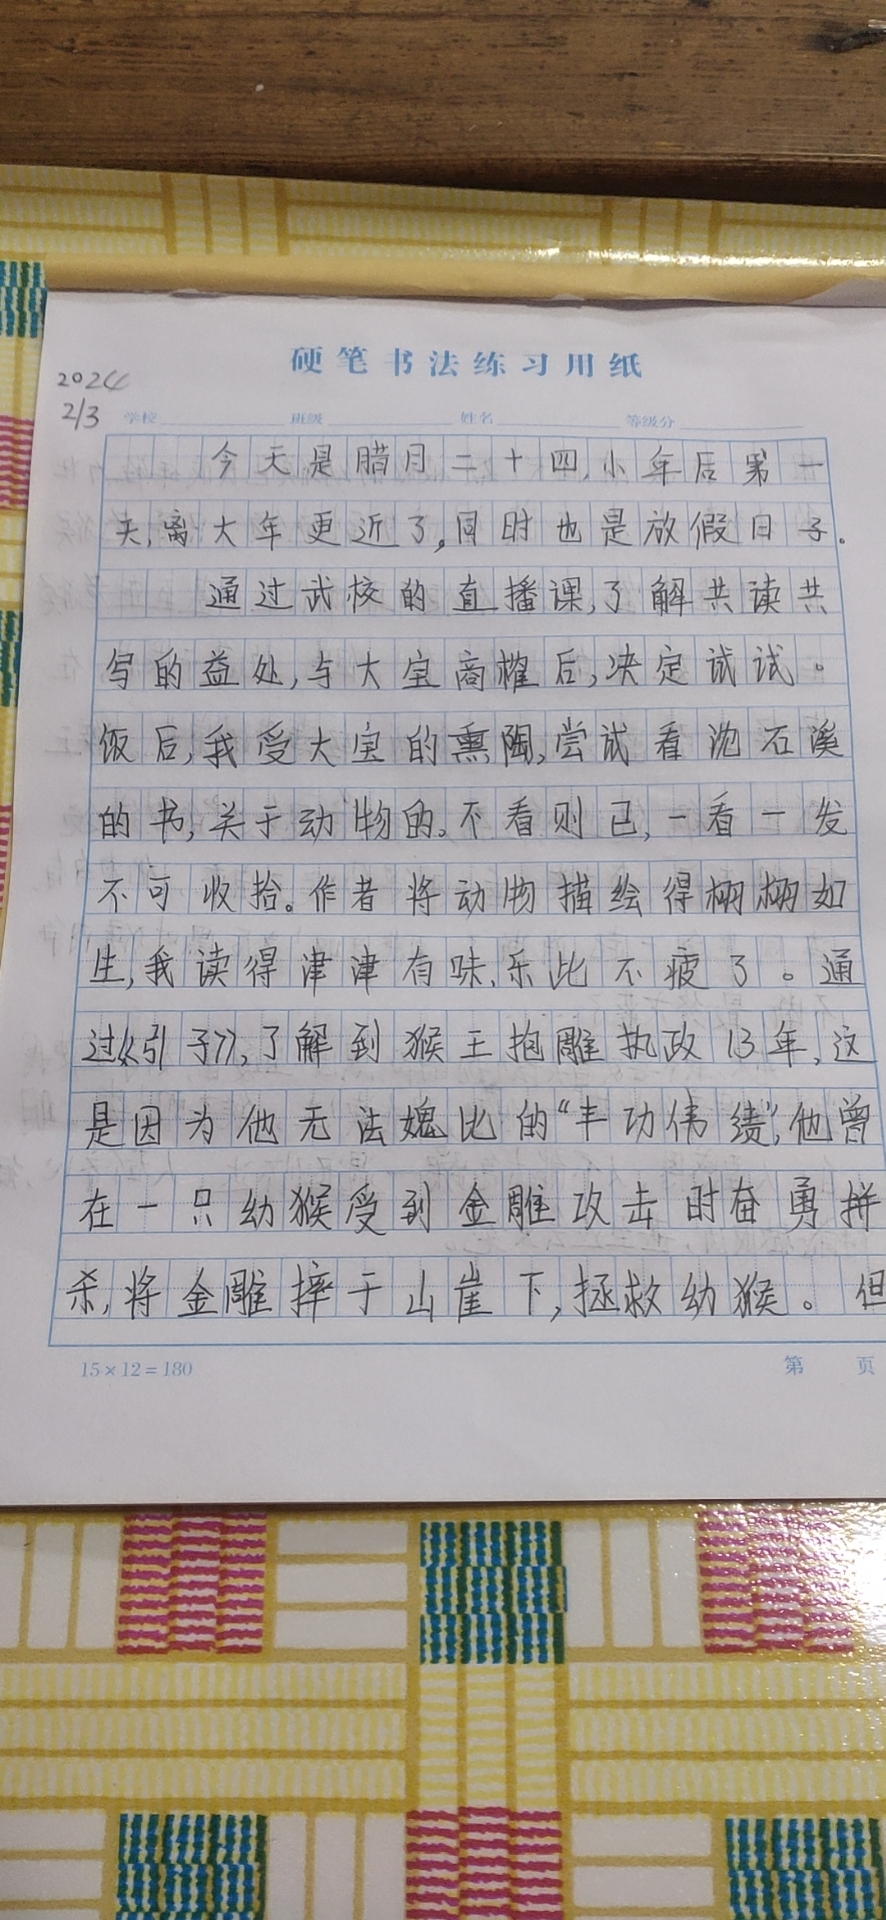 硬笔书法练习用纸
2024
2/3
学校 班级 姓名 等级分
今天是腊月二十四,小年后第一
天,离大年更近了,同时也是放假日子.
通过武校的直播课,了解共读共
写的益处,与大宝商榷后,决定试试。
饭后,我受大宝的熏陶,尝试看沈石溪
的书,关于动物的。不看则已,一看一发
不可收拾。作者将动物描绘得栩栩如
生,我读得津津有味,乐此不疲了。通
过《引子》,了解到猴王抱雕执政13年,这
是因为他无法媲比的“丰功伟绩”,他曾
在一只幼猴受到金雕攻击时奋勇拼
杀,将金雕摔于山崖下,拯救幼猴。但
15×12=180
第 页